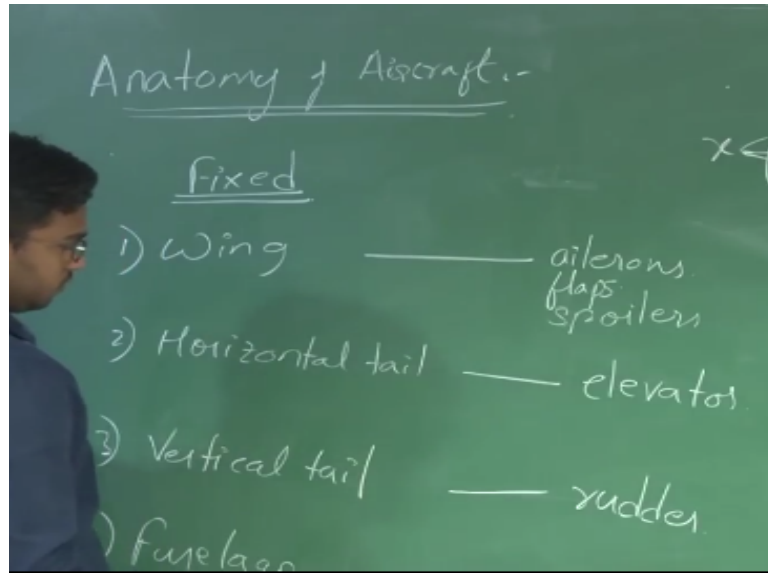 Anatomy of Aircraft :-
Fixed
x
1) Wing — ailerons
flaps
spoilers
2) Horizontal tail — elevator
3) Vertical tail — rudder
) Fuselage